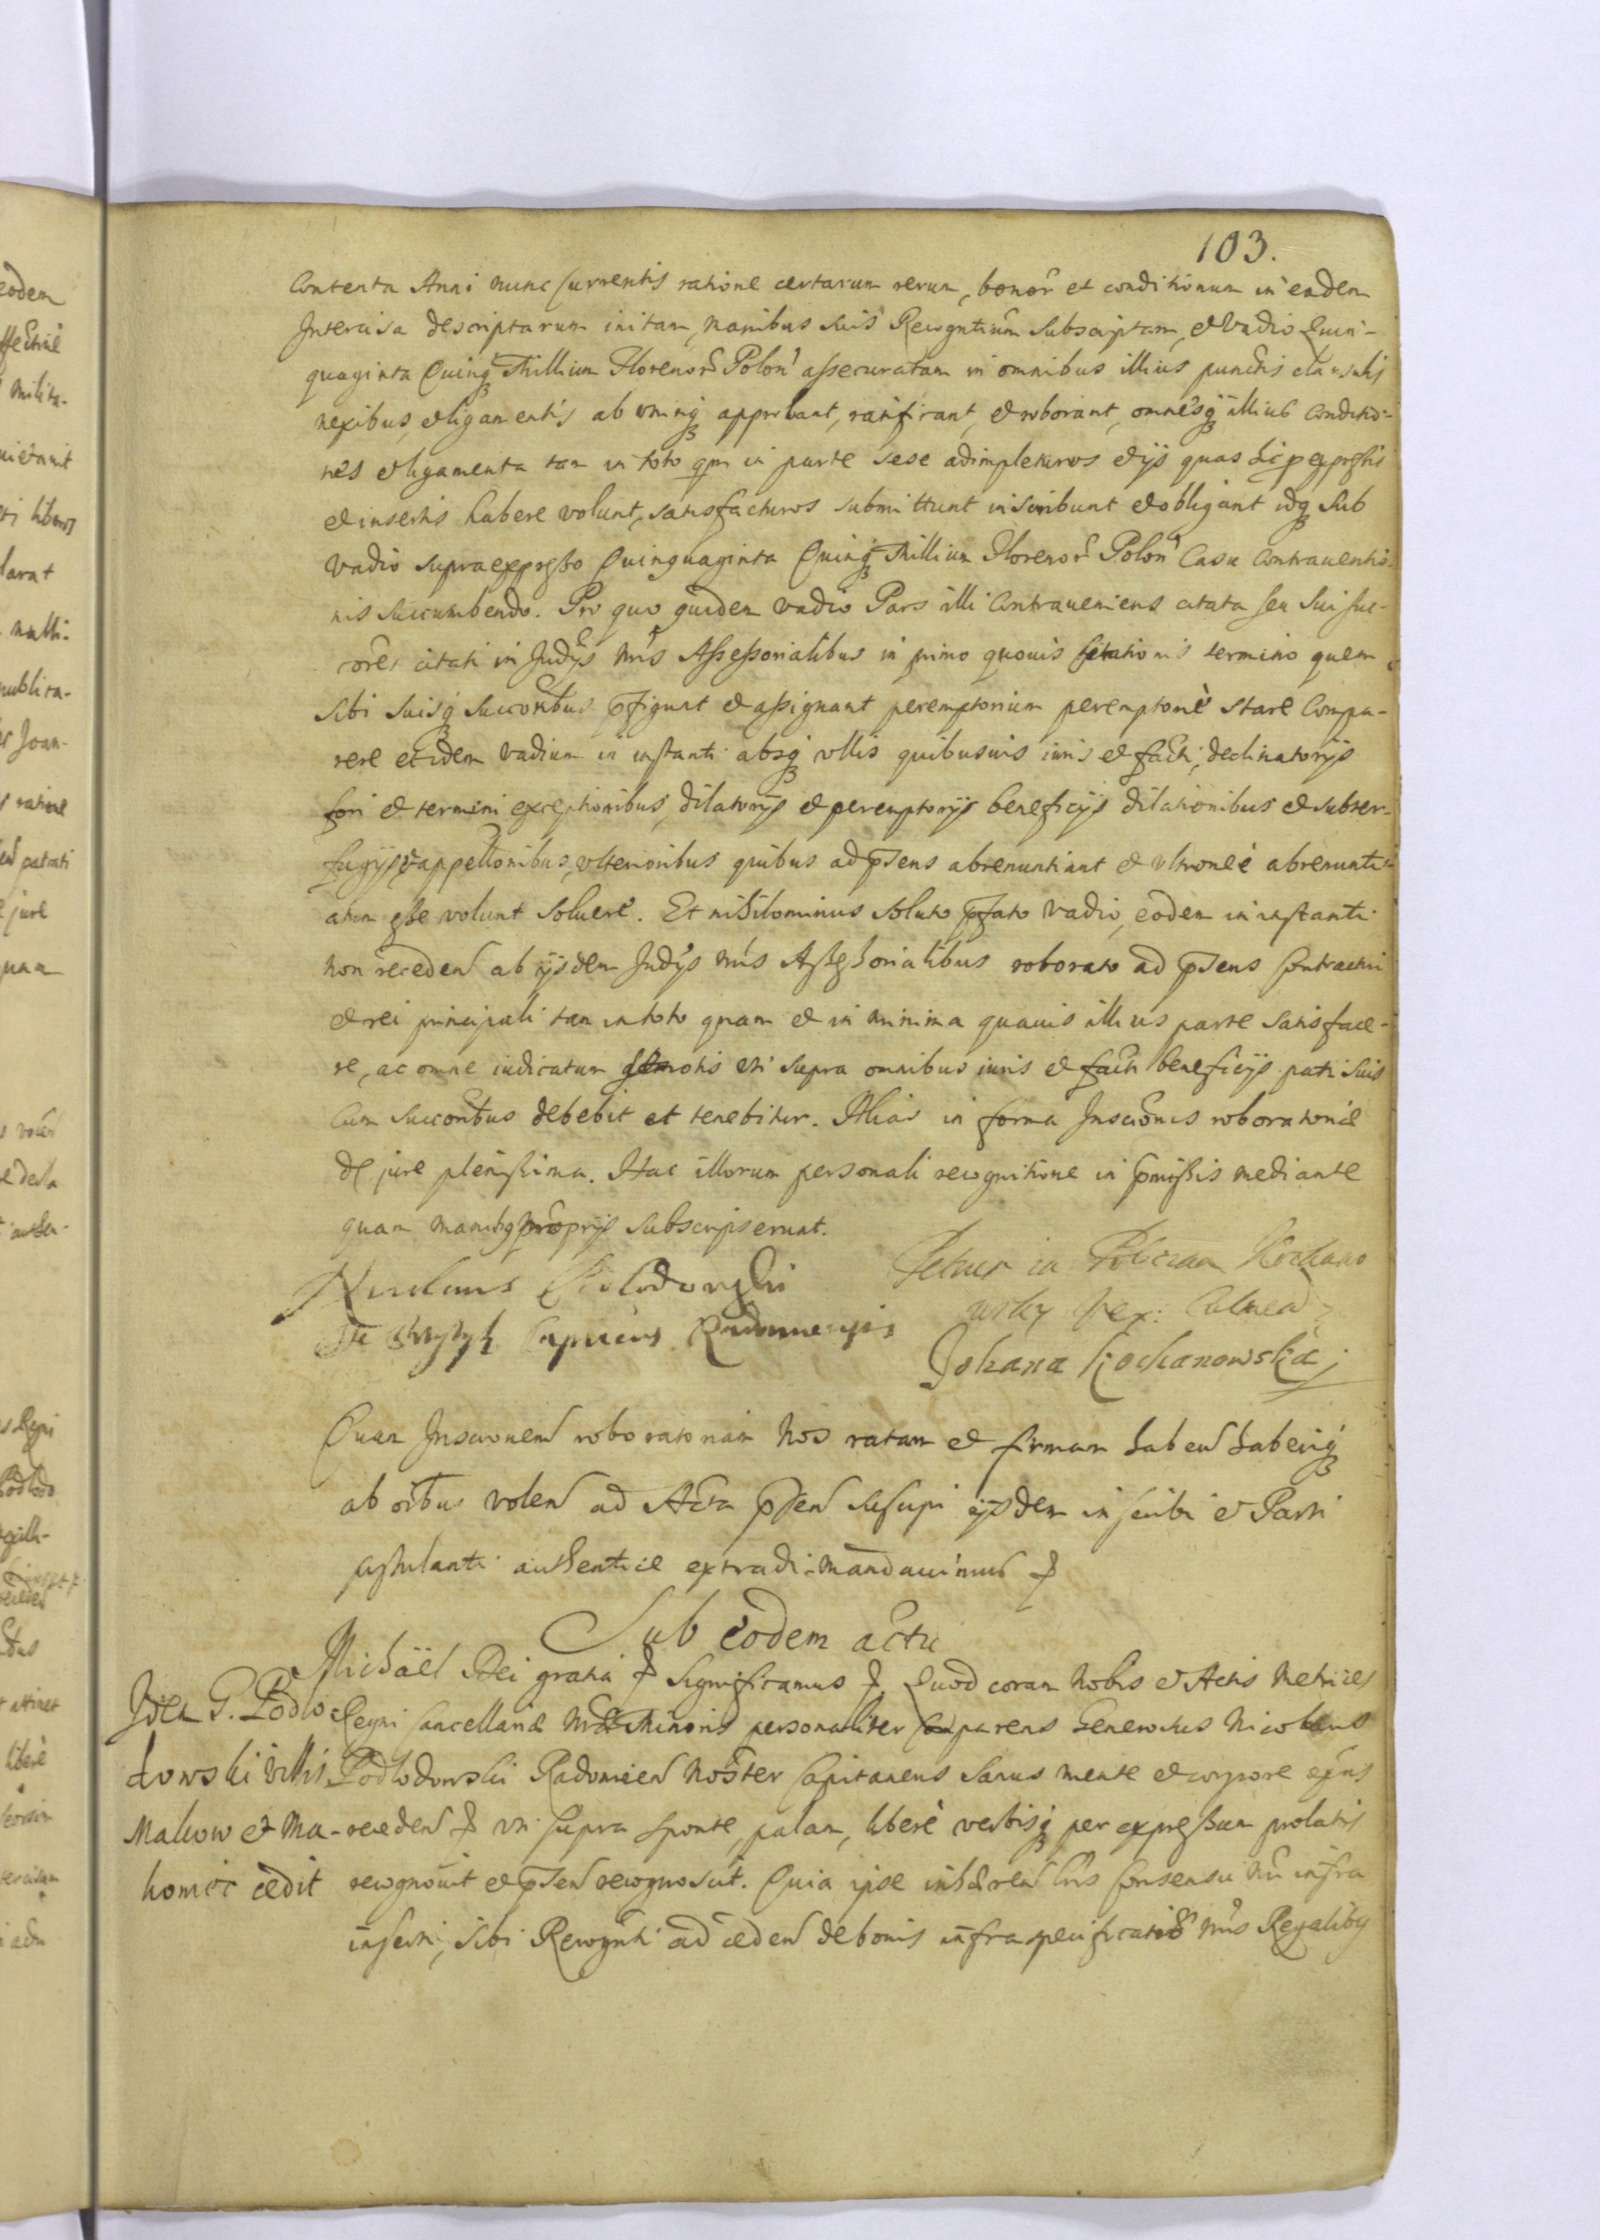 103.
Contenta Anni nunc Currentis ratione certarum rerum, bonor et conditionum in eadem
Intercisa descriptarum initam, manibus suis Recogntium subscriptam, et vadio Quin-
quaginta Quinq Millium Florenor Polon assecuratam in omnibus illius punctis clausulis
nexibus, et ligamentis ab utrinq approbant, ratificant, et roborant, omnesq illius Conditio-
nes et ligamenta tam in toto qm in parte sese adimpleturos et ijs quas hic p expressis
et insertis habere volunt, satisfacturos submittunt inscribunt et obligant idq sub
vadio supraexpresso Quinquaginta Quinq Millium Florenor Polon Casu Contrauentio-
nis succumbendo. Pro quo quidem vadio Pars illi Contraueniens citata seu sui suc-
cores citati in Judijs nris Assessorialibus in primo quouis citationis termino quem
sibi suisq succoribus pfigunt et assignant peremptorium peremptorie stare Compa-
rere et idem vadium in instanti absq vllis quibusuis iuris et facti, declinatorijs
fori et termini exceptionibus, dilatorijs et peremptorijs beneficijs dilationibus et subter-
fugijs et appellonibus, vlterioribus quibus ad psens abrenuntiant et vltronee abrenunti-
atum esse volunt soluere. Et nihilominus soluto pfato vadio, eodem in instanti
non receden ab ijsdem Judijs nris Assessorialibus roborato ad psens Contractui
et rei principali tam in toto quam et in minima quauis illius parte satisface-
re, ac omne iudicatum semotis uti supra omnibus iuris et facti beneficijs pati suis
cum succoribus debebit et tenebitur. Alias in forma Inscrionis roboratoriae
de jure plenissima. Hac illorum personali recognitione in pmissis mediante
quam manibq proprijs subscripserunt.
Nicolaus Podlodowski
de Przytyk Capitaneus Radomiensis
Petrus in Policzna Kochano
wsky Vex: Calmead
Johana Kochanowska
Quam Inscrionem roboratoriam nos ratam et firmam haben haberiq
ab oibus volen ad Acta psen suscipi ijsdem inscribi et Parti
postulanti authentice extradi mandauimus
Sub eodem actu
Michäel Dei gratia significamus Quod coram nobis et Actis Metrices
Regni Cancellariae nrae Minoris personaliter comparens Generosus Nicolaus
Podlodowski Radomien noster Capitaneus sanus mente et corpore existens
receden uti supra sponte, palam, libere verbisq per expressum prolatis
recognouit et psen recognoscit. Quia ipse inhaeren lris Consensu nri infra
inserti, sibi Recognti ad ceden de bonis infra specificatis nris Regalibq
Idem G. Podlo-
dowski villis
Makow et Ma-
komiec cedit